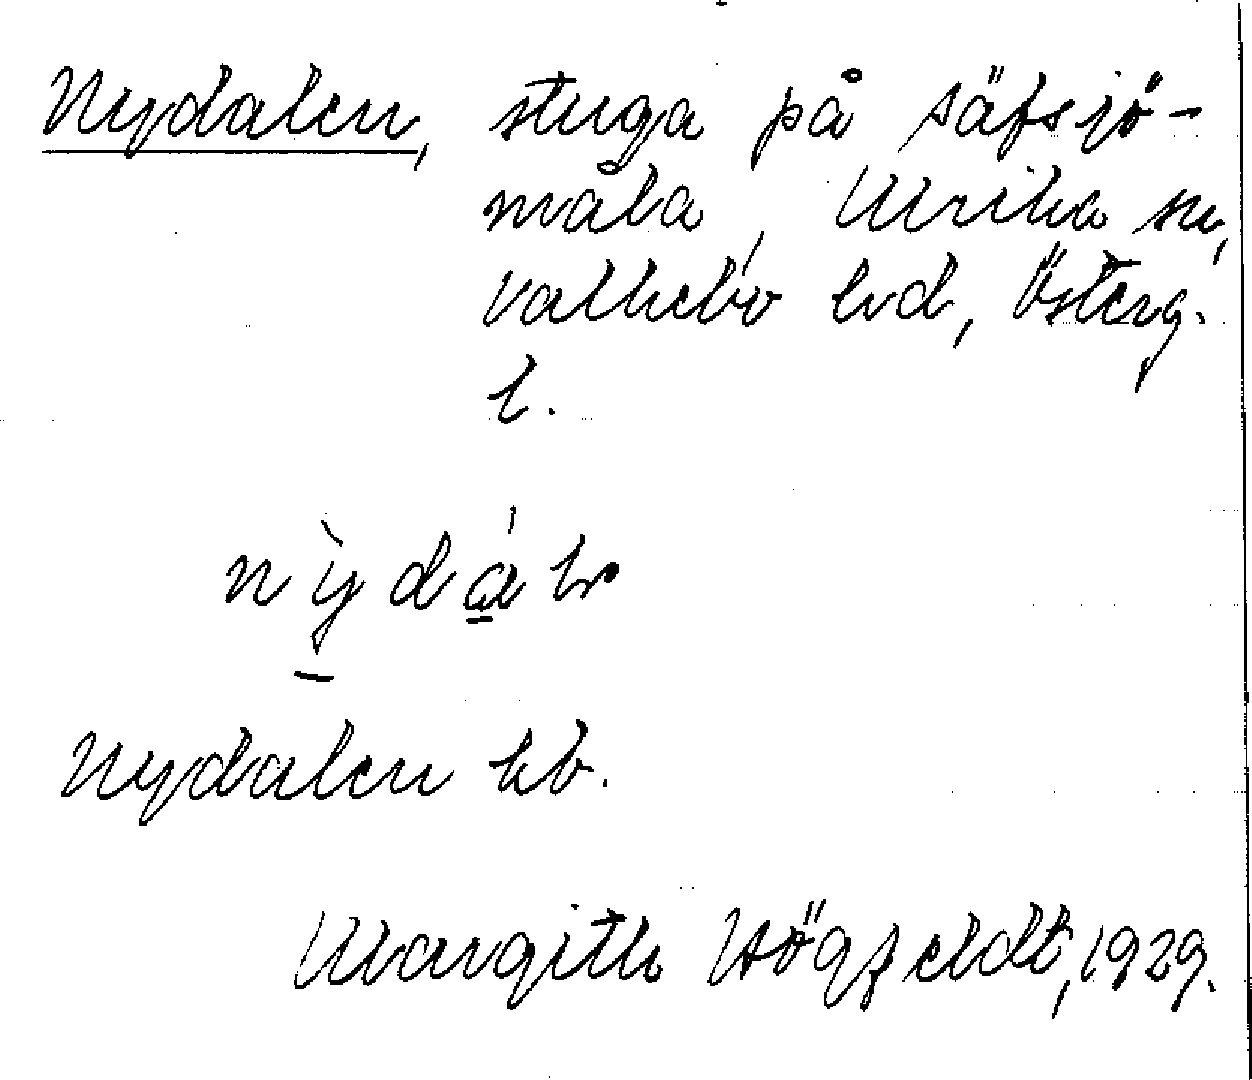 Nydalen, stuga på Säfsjö-
måla, Ulrika sn,
Valkebo hd, Österg.
l.
nỳdáln
Nydalen kb.
Margith Högfeldt, 1929.